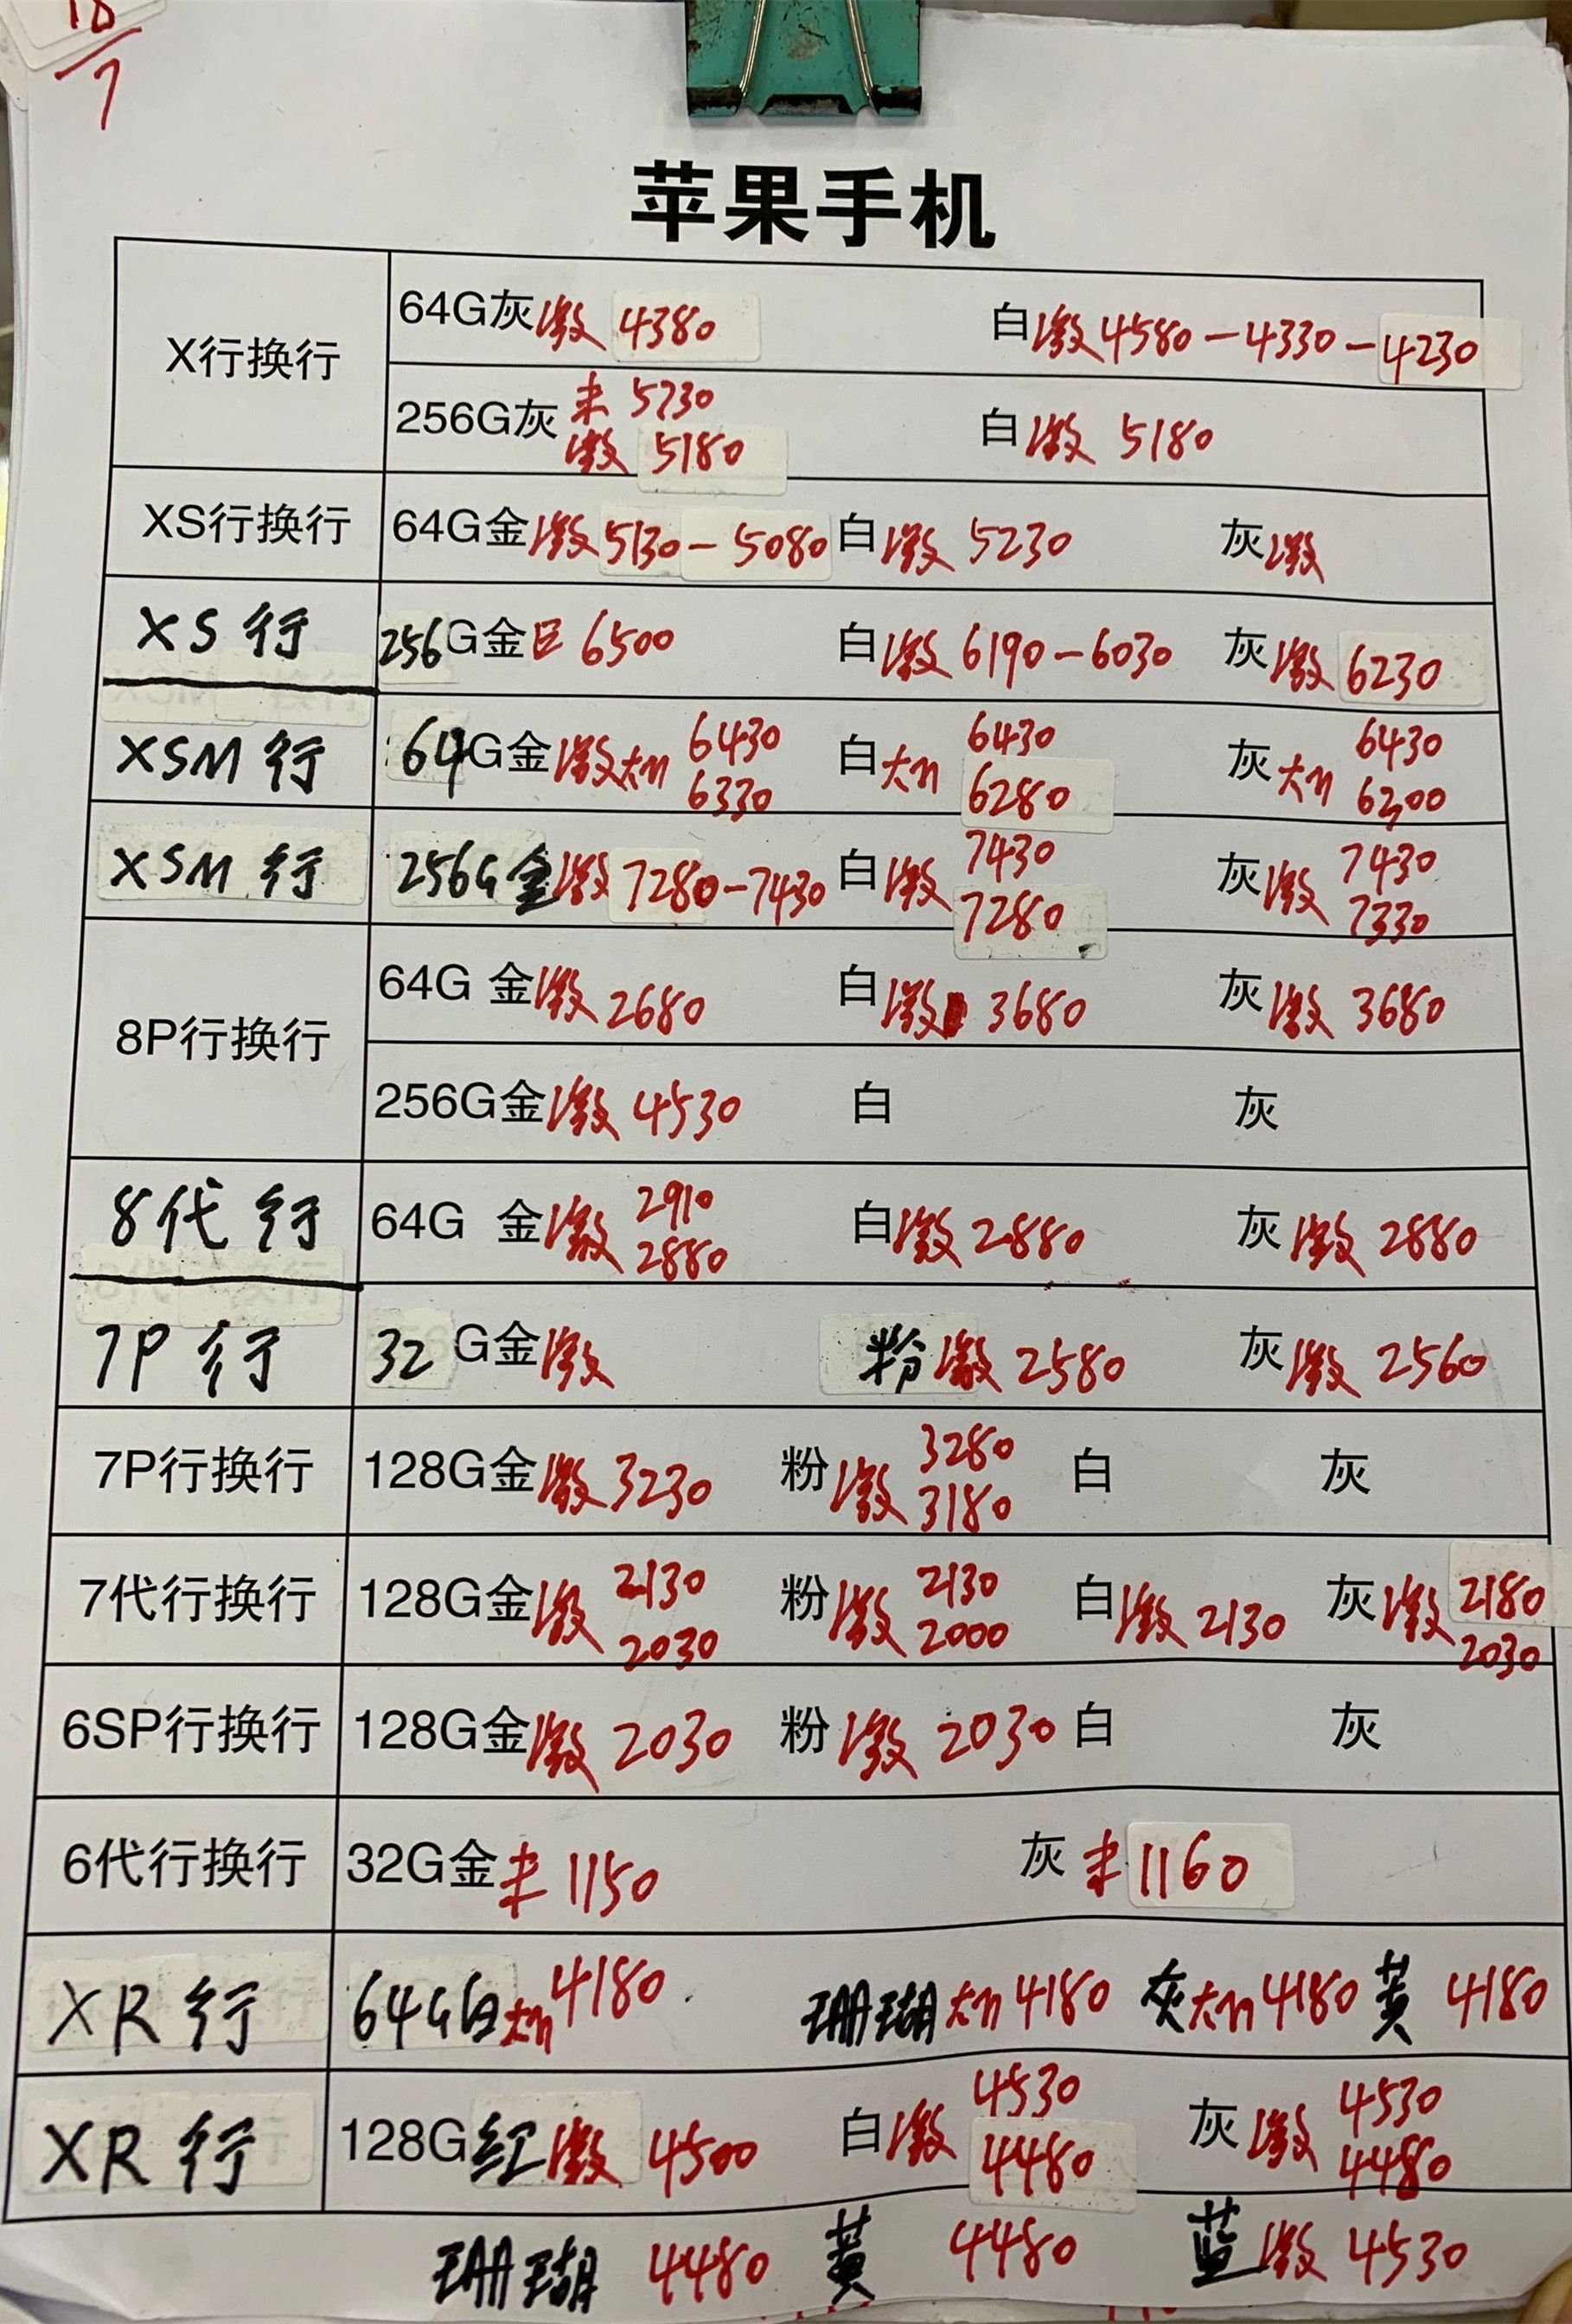 10/7
苹果手机
X行换行
64G灰 激 4380 白 激 4580-4330-4230
256G灰 未 5730 白 激 5180
激 5180
XS行换行 64G金 激 5130-5080 白 激 5230 灰 激
XS行 256G金 6500 白 激 6190-6030 灰 激 6230
XSM行 64G金 激 6430 白 6430 灰 6430
6330 6280 6200
XSM行 256G金 激 7280-7430 白 激 7430 灰 激 7430
7280 7330
8P行换行
64G 金 激 2680 白 激 3680 灰 激 3680
256G金 激 4530 白 灰
8代行 64G 金 激 2910 白 激 2880 灰 激 2880
2880
7P行 32G金 激 粉 激 2580 灰 激 2560
7P行换行 128G金 激 3230 粉 激 3280 白 灰
3180
7代行换行 128G金 激 2130 粉 激 2130 白 激 2130 灰 激 2180
2030 2000 2030
6SP行换行 128G金 激 2030 粉 激 2030 白 灰
6代行换行 32G金 未 1150 灰 未 1160
XR行 64G白 4180 珊瑚 4180 灰 4180 黄 4180
XR行 128G红 激 4500 白 激 4530 灰 激 4530
4480 4480
珊瑚 4480 黄 4480 蓝 激 4530